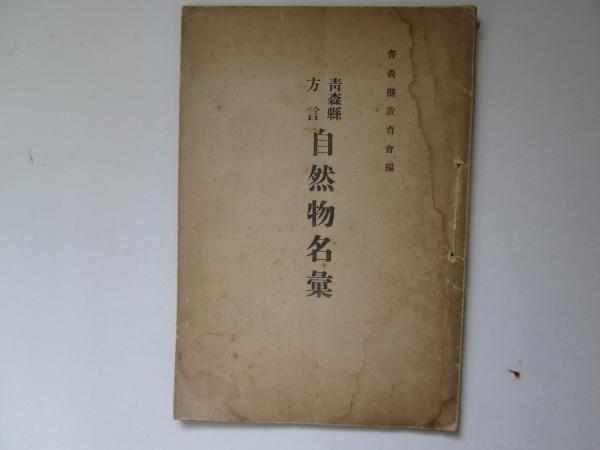 青森縣教育會編
青森縣
方言
自然物名彙